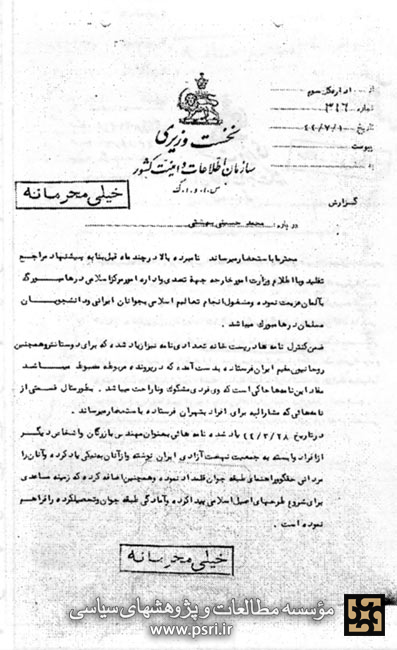 نخست وزیری
سازمان اطلاعات و امنیت کشور
س.ا.و.ا.ک
از اداره کل سوم
شماره ۳۱۶
تاریخ ۴۴/۷/۱
پیوست
خیلی محرمانه
گزارش
درباره : محمد حسینی بهشتی
محترما باستحضار میرساند نامبرده بالا در چند ماه قبل بنا به پیشنهاد مراجع
تقلید و با اطلاع وزارت امور خارجه جهة تصدی و اداره امور مرکز اسلامی در هامبورگ
بآلمان عزیمت نموده و مشغول انجام تعالیم اسلامی بجوانان ایرانی و دانشجویان
مسلمان در هامبورگ میباشد .
ضمن کنترل نامه ها در پست خانه تعدادی نامه نیز از یاد شده که برای دوستان و همچنین
روحانیون مقیم ایران فرستاده بدست آمده که در پرونده مربوطه مضبوط میباشد
مفاد این نامه ها حاکی است که وی فردی مشکوک و ناراحت میباشد . بطور مثال قسمتی از
نامه هائی که مشارالیه برای افراد بتهران فرستاده باستحضار میرساند .
در تاریخ ۴۴/۳/۲۸ یاد شده نامه هائی بعنوان مهندس بازرگان و اشخاص دیگر
از افراد وابسته به جمعیت نهضت آزادی ایران نوشته و از آنان به نیکی یاد کرده و آنان را
مردانی حقگو و راهنمای طبقه جوان قلمداد نموده و همچنین اضافه کرده که زمینه مساعدی
برای شروع طرحهای اصیل اسلامی پیدا کرده و آمادگی طبقه جوان و تحصیلکرده را فراهم
نموده است .
خیلی محرمانه
مؤسسه مطالعات و پژوهشهای سیاسی
www.psri.ir